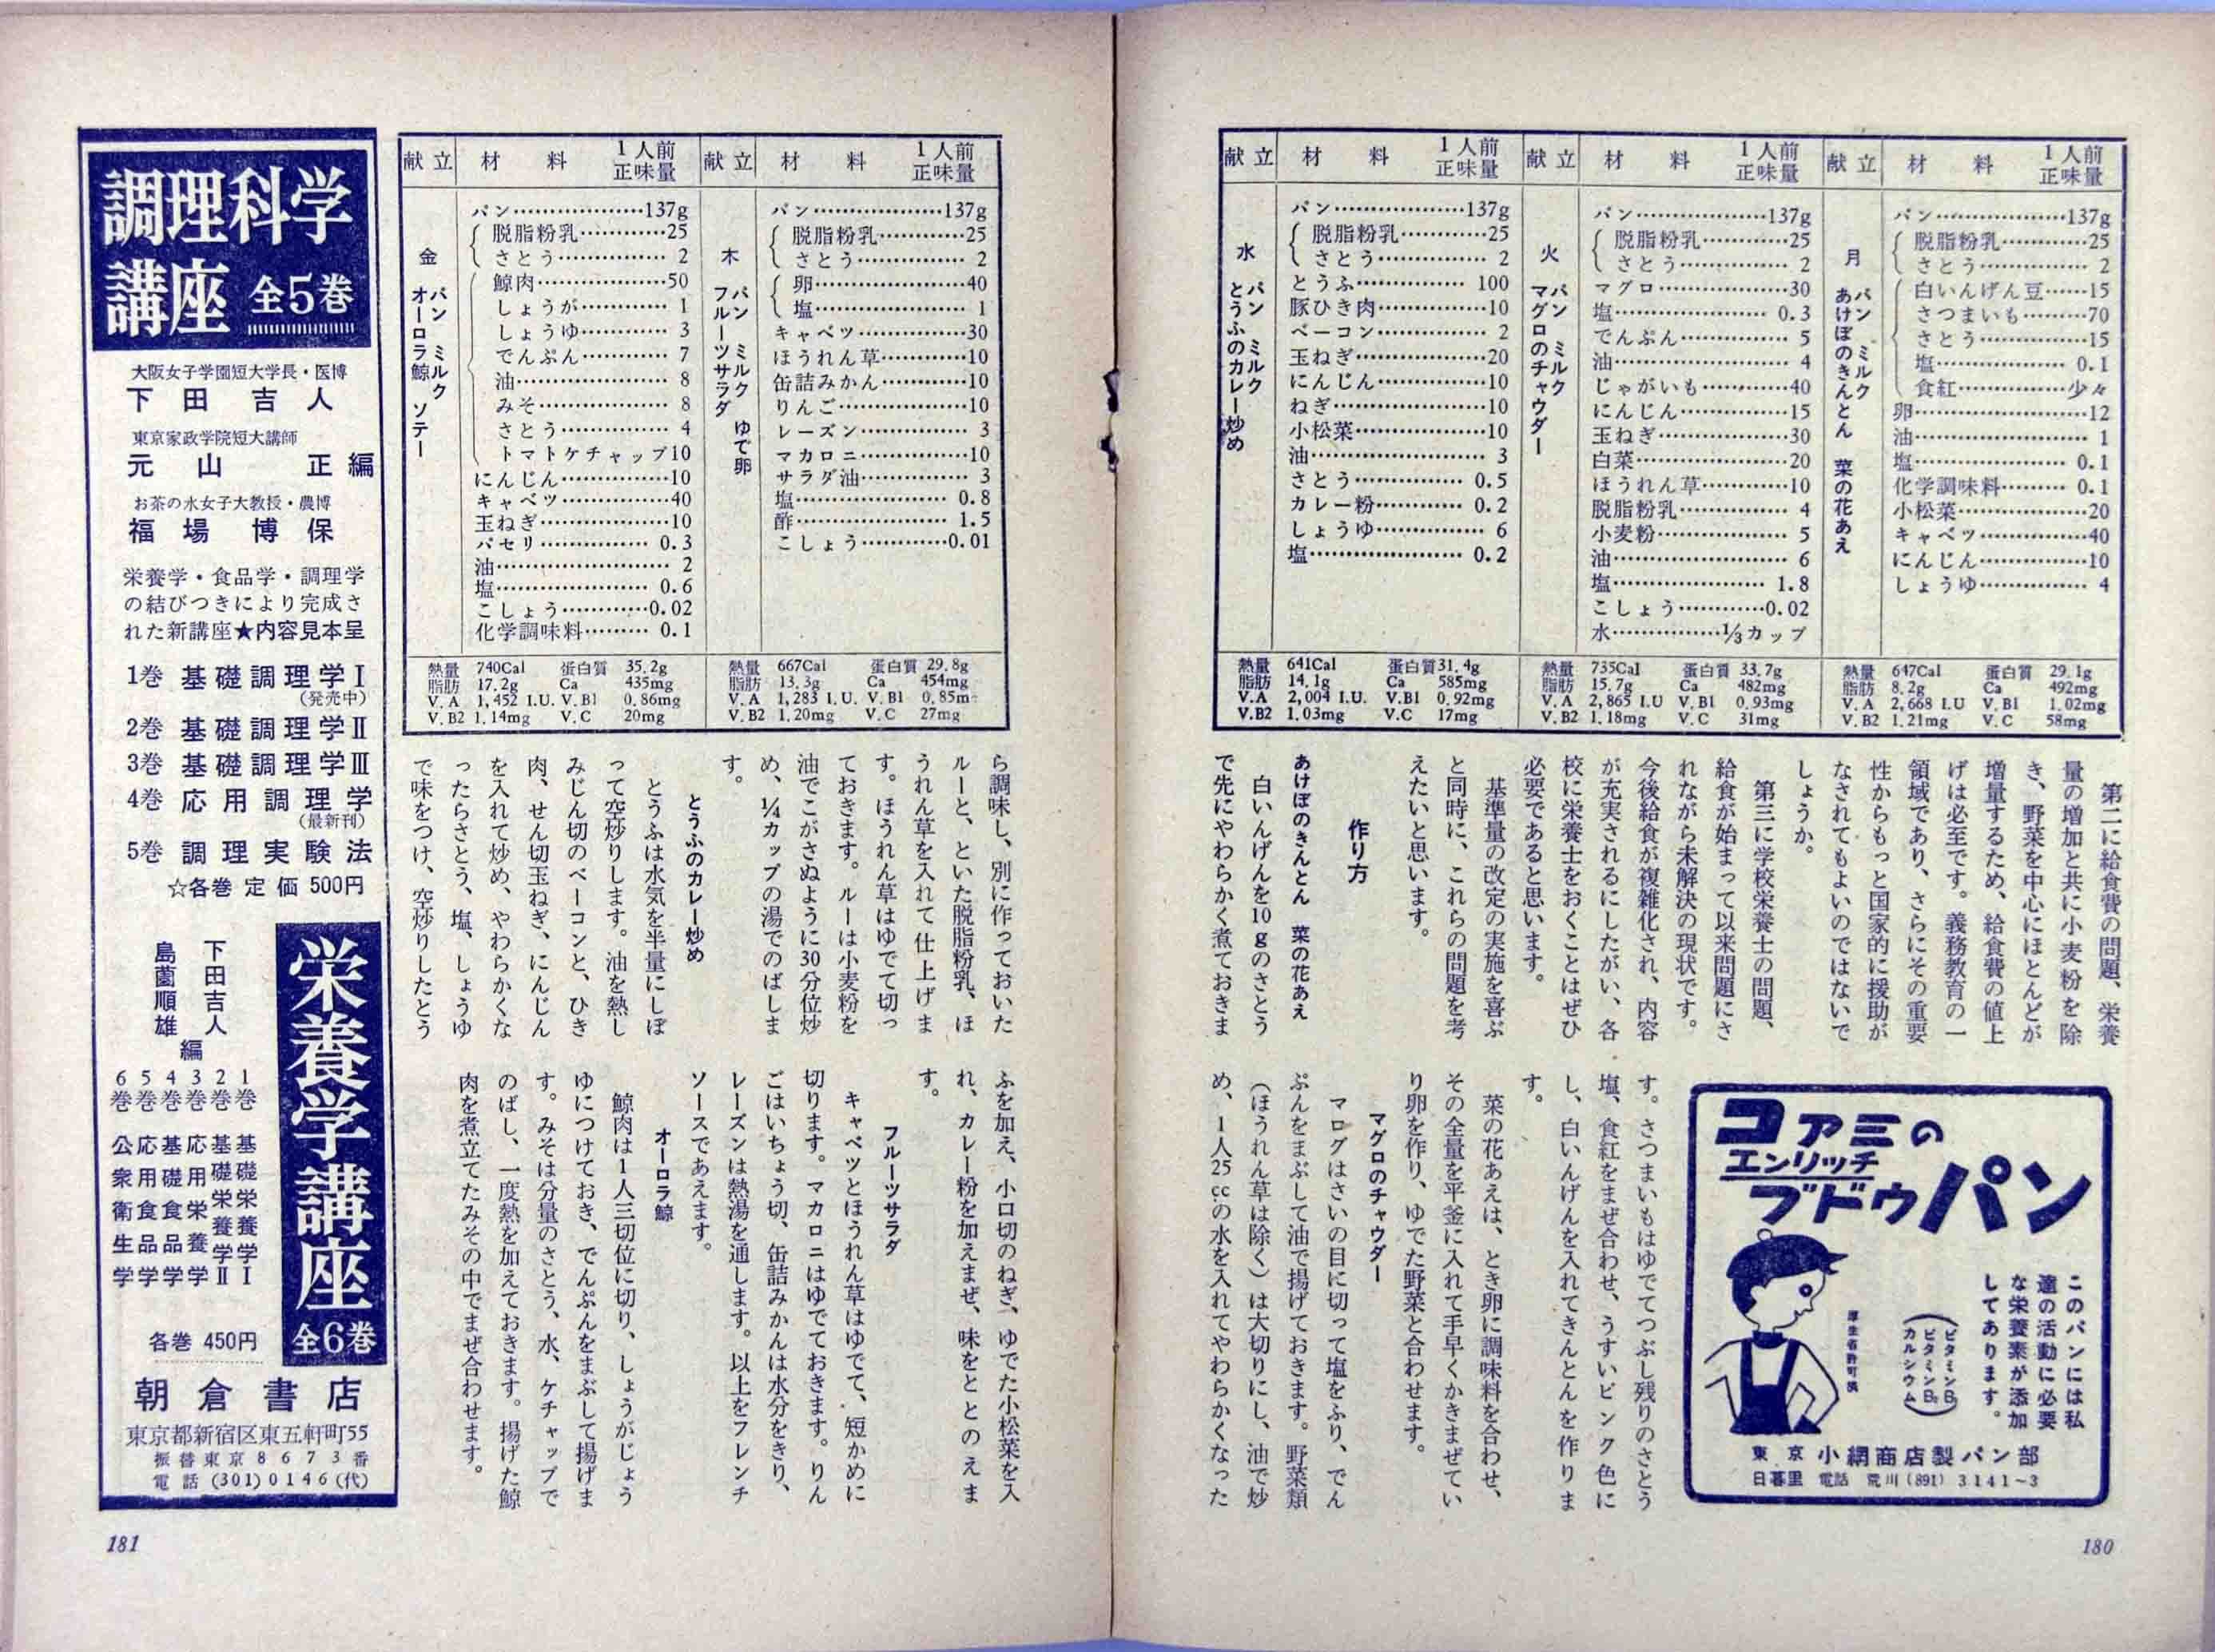 献立 材料 1人前正味量
月
パン ミルク
あけぼのきんとん 菜の花あえ
パン……137g
脱脂粉乳……25
さとう……2
白いんげん豆……15
さつまいも……70
さとう……15
塩……0.1
食紅……少々
卵……12
油……1
塩……0.1
化学調味料……0.1
小松菜……20
キャベツ……40
にんじん……10
しょうゆ……4
熱量 647Cal 蛋白質 29.1g
脂肪 8.2g Ca 492mg
V.A 2,668 I.U V.B1 1.02mg
V.B2 1.21mg V.C 58mg
献立 材料 1人前正味量
火
パン ミルク
マグロのチャウダー
パン……137g
脱脂粉乳……25
さとう……2
マグロ……30
塩……0.3
でんぷん……5
油……4
じゃがいも……40
にんじん……15
玉ねぎ……30
白菜……20
ほうれん草……10
脱脂粉乳……4
小麦粉……5
油……6
塩……1.8
こしょう……0.02
水……⅓カップ
熱量 735Cal 蛋白質 33.7g
脂肪 15.7g Ca 482mg
V.A 2,865 I.U V.B1 0.93mg
V.B2 1.18mg V.C 31mg
献立 材料 1人前正味量
水
パン ミルク
とうふのカレー炒め
パン……137g
脱脂粉乳……25
さとう……2
とうふ……100
豚ひき肉……10
ベーコン……2
玉ねぎ……20
にんじん……10
ねぎ……10
小松菜……10
油……3
さとう……0.5
カレー粉……0.2
しょうゆ……6
塩……0.2
熱量 641Cal 蛋白質 31.4g
脂肪 14.1g Ca 585mg
V.A 2,004 I.U. V.B1 0.92mg
V.B2 1.03mg V.C 17mg
第二に給食費の問題、栄養
量の増加と共に小麦粉を除
き、野菜を中心にほとんどが
増量するため、給食費の値上
げは必至です。義務教育の一
領域であり、さらにその重要
性からもっと国家的に援助が
なされてもよいのではないで
しょうか。
第三に学校栄養士の問題、
給食が始まって以来問題にさ
れながら未解決の現状です。
今後給食が複雑化され、内容
が充実されるにしたがい、各
校に栄養士をおくことはぜひ
必要であると思います。
基準量の改定の実施を喜ぶ
と同時に、これらの問題を考
えたいと思います。
作り方
あけぼのきんとん 菜の花あえ
白いんげんを10gのさとう
で先にやわらかく煮ておきま
す。さつまいもはゆでてつぶし残りのさとう
塩、食紅をまぜ合わせ、うすいピンク色に
し、白いんげんを入れてきんとんを作りま
す。
菜の花あえは、とき卵に調味料を合わせ、
その全量を平釜に入れて手早くかきまぜてい
り卵を作り、ゆでた野菜と合わせます。
マグロのチャウダー
マログはさいの目に切って塩をふり、でん
ぷんをまぶして油で揚げておきます。野菜類
（ほうれん草は除く）は大切りにし、油で炒
め、1人25ccの水を入れてやわらかくなった
コアミの
エンリッチ
ブドウパン
このパンには私
達の活動に必要
な栄養素が添加
してあります。
（ビタミンB₁
ビタミンB₂
カルシウム）
厚生省許可済
東京 小網商店製パン部
日暮里 電話 荒川(891)3141～3
180
献立 材料 1人前正味量
木
パン ミルク ゆで卵
フルーツサラダ
パン……137g
脱脂粉乳……25
さとう……2
卵……40
塩……1
キャベツ……30
ほうれん草……10
缶詰みかん……10
りんご……10
レーズン……3
マカロニ……10
サラダ油……3
塩……0.8
酢……1.5
こしょう……0.01
熱量 667Cal 蛋白質 29.8g
脂肪 13.3g Ca 454mg
V.A 1,283 I.U. V.B1 0.85m
V.B2 1.20mg V.C 27mg
献立 材料 1人前正味量
金
パン ミルク
オーロラ鯨 ソテー
パン……137g
脱脂粉乳……25
さとう……2
鯨肉……50
しょうが……1
しょうゆ……3
でんぷん……7
油……8
みそ……8
さとう……4
トマトケチャップ10
にんじん……10
キャベツ……40
玉ねぎ……10
パセリ……0.3
油……2
塩……0.6
こしょう……0.02
化学調味料……0.1
熱量 740Cal 蛋白質 35.2g
脂肪 17.2g Ca 435mg
V.A 1,452 I.U. V.B1 0.86mg
V.B2 1.14mg V.C 20mg
ら調味し、別に作っておいた
ルーと、といた脱脂粉乳、ほ
うれん草を入れて仕上げま
す。ほうれん草はゆでて切っ
ておきます。ルーは小麦粉を
油でこがさぬように30分位炒
め、¼カップの湯でのばしま
す。
とうふのカレー炒め
とうふは水気を半量にしぼ
って空炒りします。油を熱し
みじん切のベーコンと、ひき
肉、せん切玉ねぎ、にんじん
を入れて炒め、やわらかくな
ったらさとう、塩、しょうゆ
で味をつけ、空炒りしたとう
ふを加え、小口切のねぎ、ゆでた小松菜を入
れ、カレー粉を加えまぜ、味をととのえま
す。
フルーツサラダ
キャベツとほうれん草はゆでて、短かめに
切ります。マカロニはゆでておきます。りん
ごはいちょう切、缶詰みかんは水分をきり、
レーズンは熱湯を通します。以上をフレンチ
ソースであえます。
オーロラ鯨
鯨肉は1人三切位に切り、しょうがじょう
ゆにつけておき、でんぷんをまぶして揚げま
す。みそは分量のさとう、水、ケチャップで
のばし、一度熱を加えておきます。揚げた鯨
肉を煮立てたみその中でまぜ合わせます。
調理科学
講座 全5巻
大阪女子学園短大学長・医博
下田吉人
東京家政学院短大講師
元山正編
お茶の水女子大教授・農博
福場博保
栄養学・食品学・調理学
の結びつきにより完成さ
れた新講座★内容見本呈
1巻 基礎調理学Ⅰ
(発売中)
2巻 基礎調理学Ⅱ
3巻 基礎調理学Ⅲ
4巻 応用調理学
(最新刊)
5巻 調理実験法
☆各巻 定価 500円
栄養学講座 全6巻
下田吉人
島薗順雄
編
1巻 基礎栄養学Ⅰ
2巻 基礎栄養学Ⅱ
3巻 応用栄養学
4巻 基礎食品学
5巻 応用食品学
6巻 公衆衛生学
各巻 450円
朝倉書店
東京都新宿区東五軒町55
振替東京8673番
電話(301)0146(代)
181